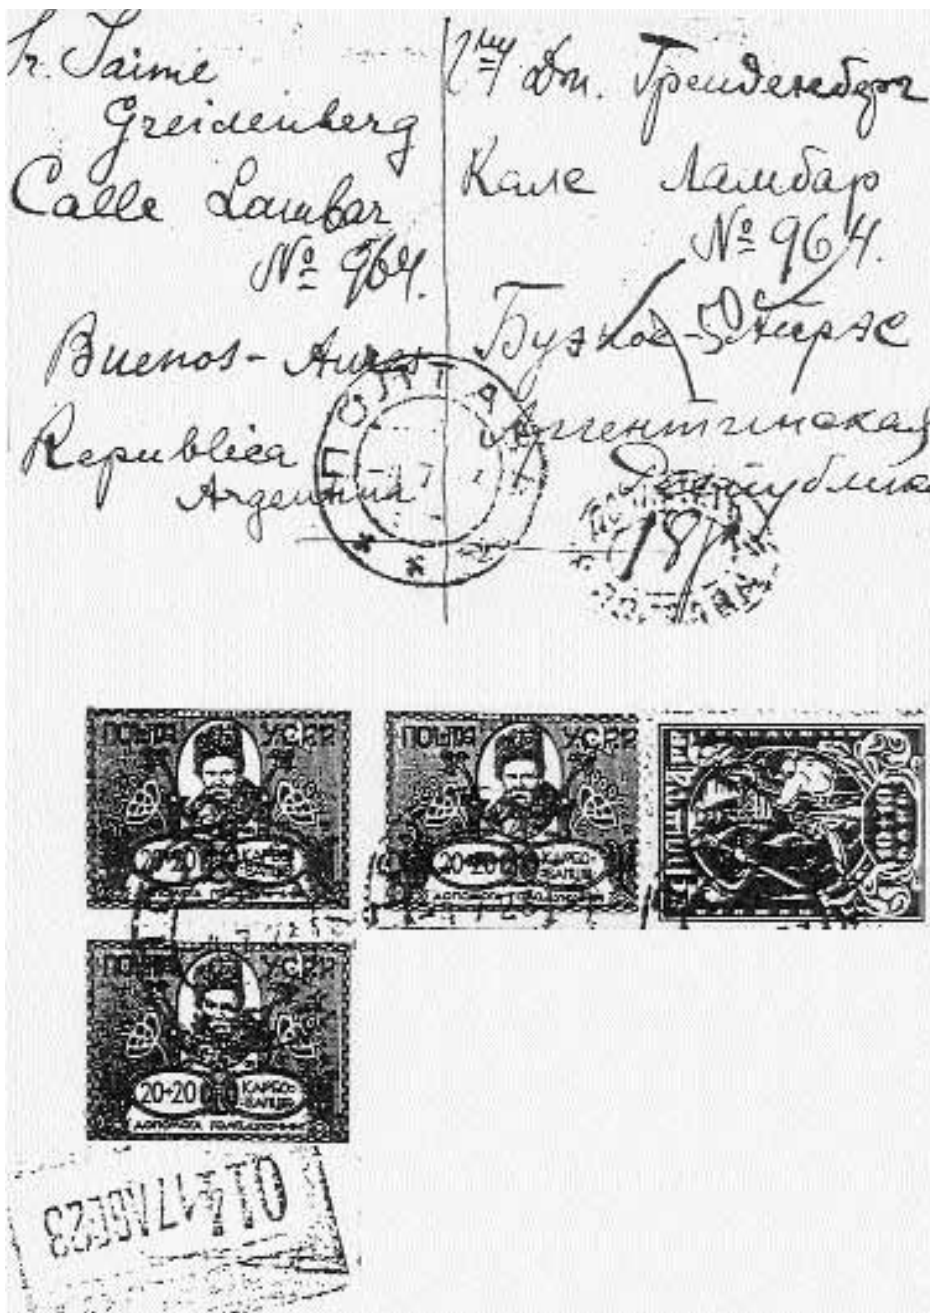 Sr. Jaime
Greidenberg
Calle Lambar
№ 964.
Buenos-Aires
Republica
Argentina
Дж. Грейденберг
Кале Ламбар
№ 964.
Буэнос-Айрес
Аргентинская
Республика
ПОЛТАВА
187
ПОШТА УСРР
20+20 КАРБО-
ВАНЦІВ
ДОПОМОГА ГОЛОДУЮЧИМ
ПОШТА УСРР
20+20 КАРБО-
ВАНЦІВ
ДОПОМОГА ГОЛОДУЮЧИМ
ПОШТА УСРР
20+20 КАРБО-
ВАНЦІВ
ДОПОМОГА ГОЛОДУЮЧИМ